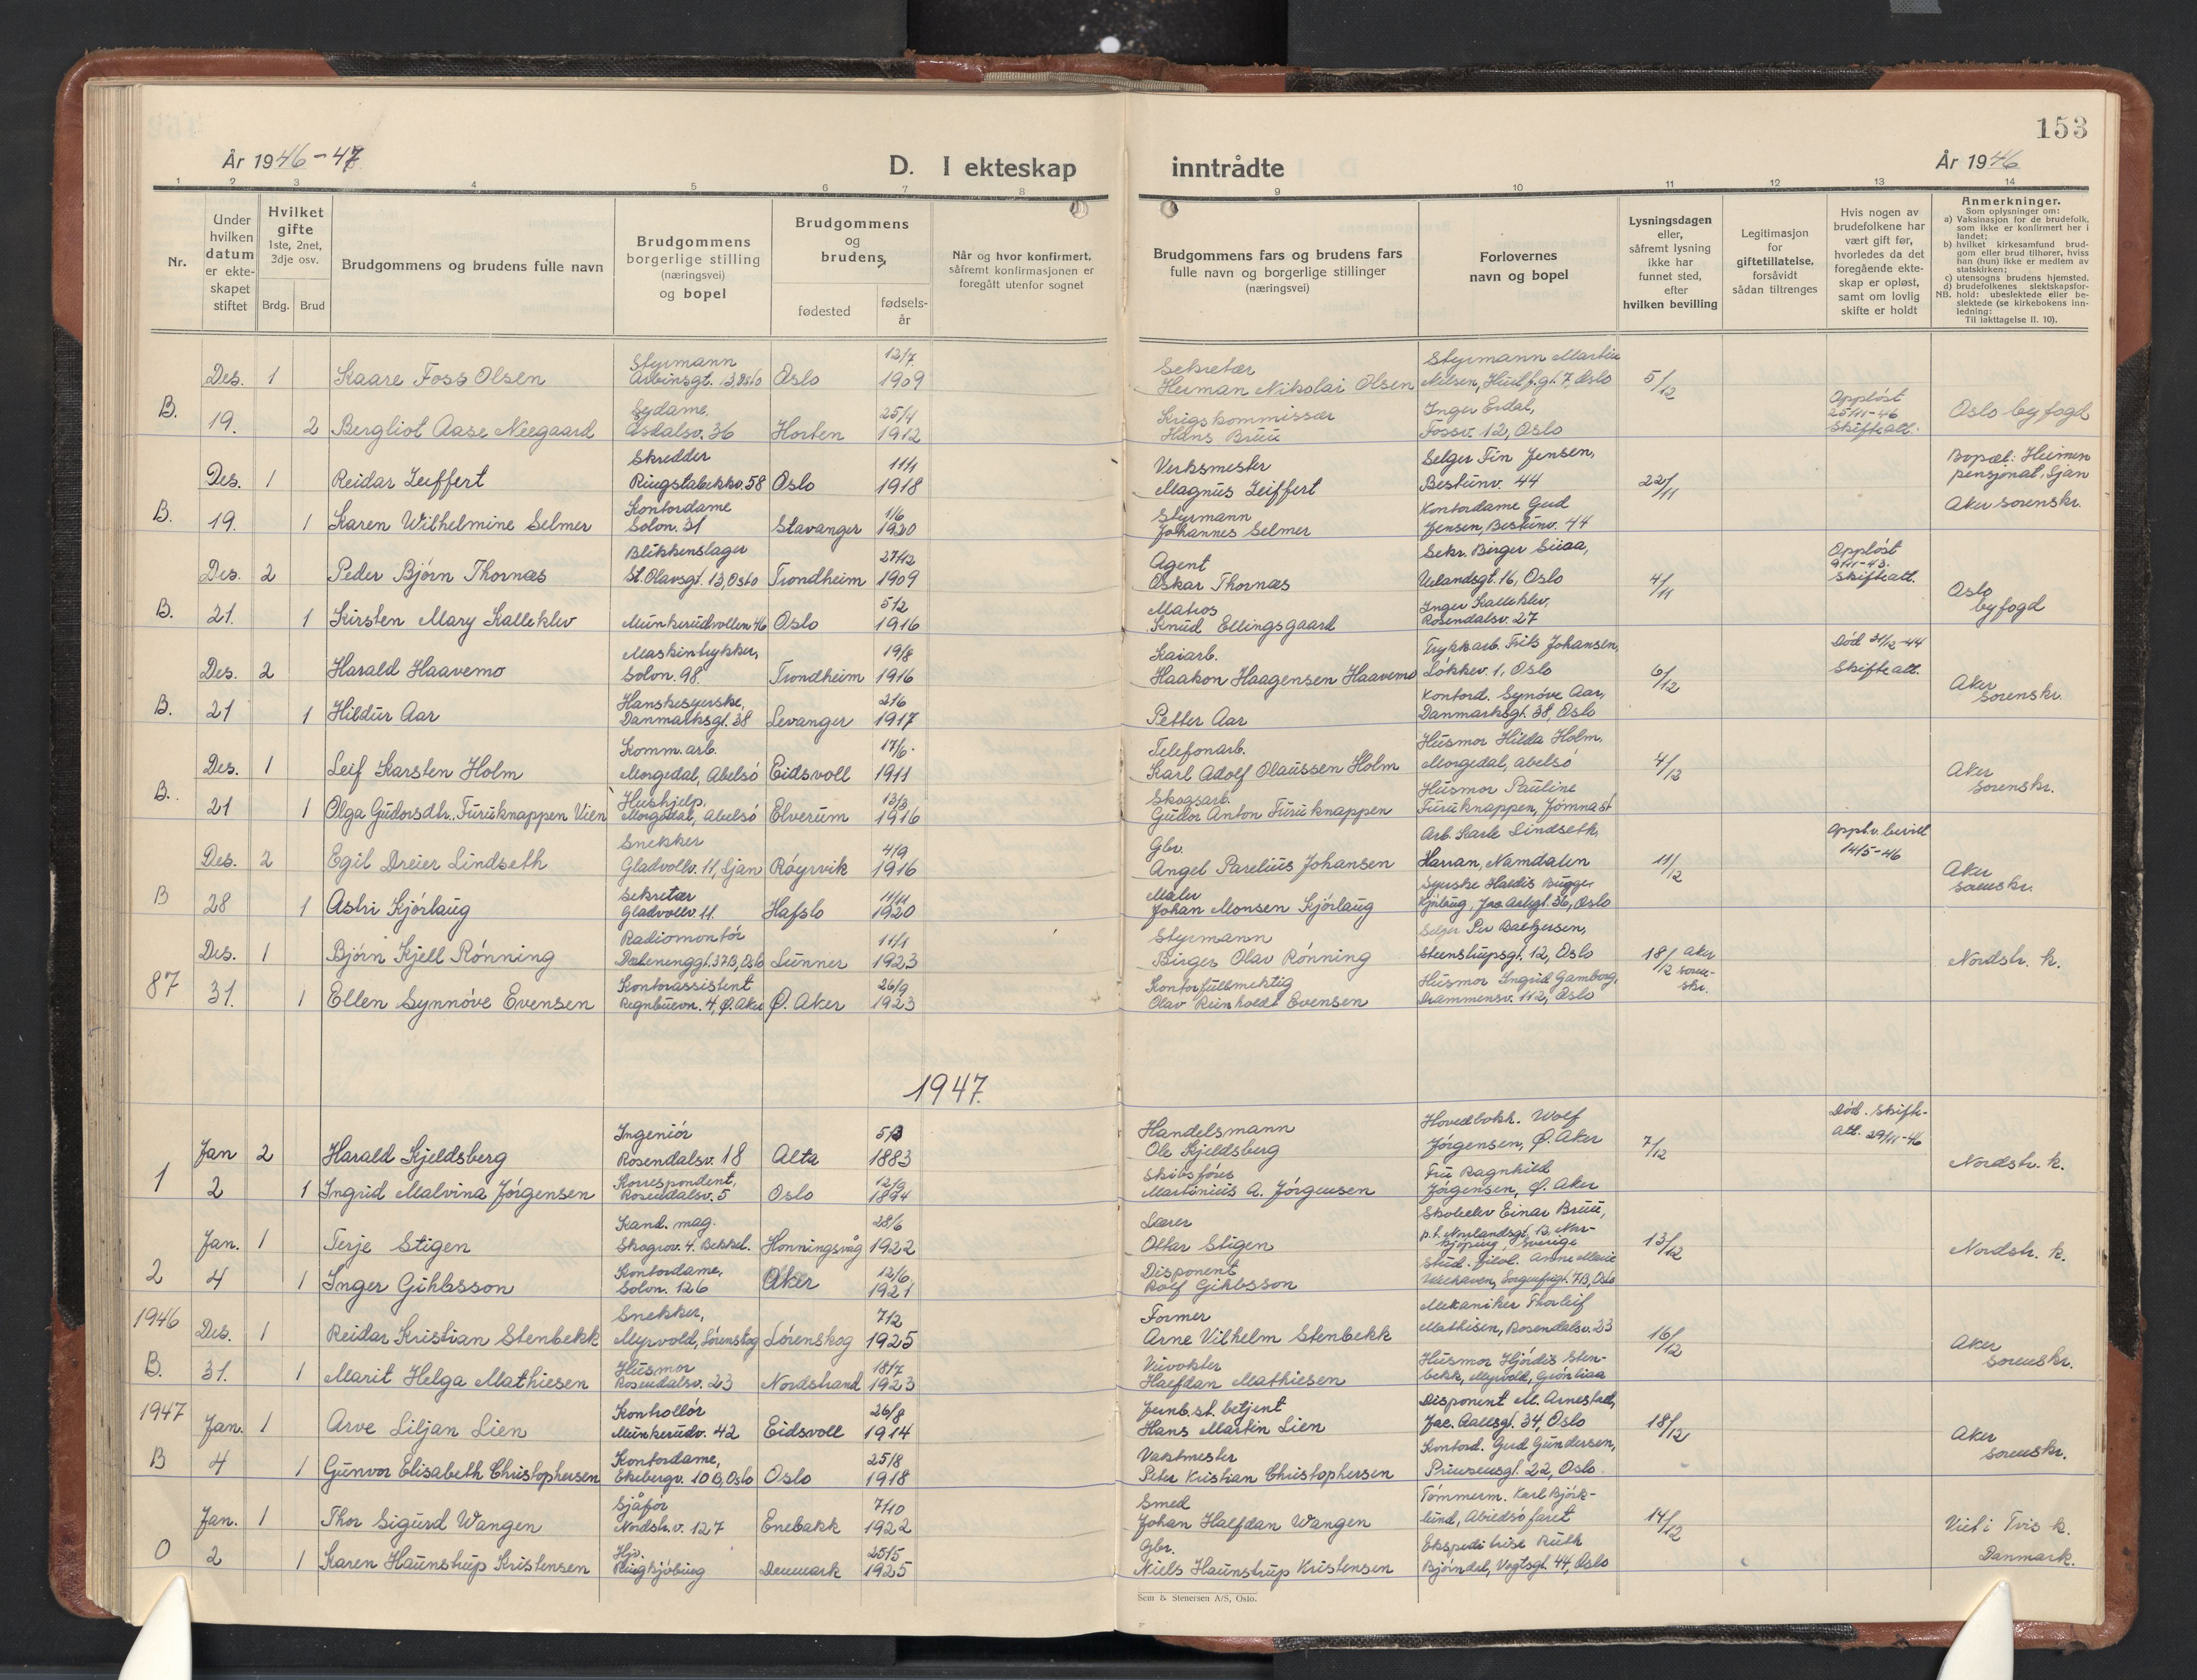 153
År 1946-47
D. I ekteskap inntrådte
År 1946
1 2 3 4 5 6 7 8 9 10 11 12 13 14
Nr.
Under hvilken datum er ekteskapet stiftet
Hvilket gifte 1ste, 2net, 3dje osv.
Brdg. Brud
Brudgommens og brudens fulle navn
Brudgommens borgerlige stilling (næringsvei) og bopel
Brudgommens og brudens
fødested
fødselsår
Når og hvor konfirmert, såfremt konfirmasjonen er foregått utenfor sognet
Brudgommens fars og brudens fars fulle navn og borgerlige stillinger (næringsvei)
Forlovernes navn og bopel
Lysningsdagen eller, såfremt lysning ikke har funnet sted, efter hvilken bevilling
Legitimasjon for giftetillatelse, forsåvidt sådan tiltrenges
Hvis nogen av brudefolkene har vært gift før, hvorledes da det foregående ekteskap er opløst, samt om lovlig skifte er holdt
Anmerkninger.
Som oplysninger om:
a) Vaksinasjon for de brudefolk, som ikke er konfirmert her i landet;
b) hvilket kirkesamfund brudgom eller brud tilhører, hviss han (hun) ikke er medlem av statskirken;
c) utensogns brudens hjemsted,
d) brudefolkenes slektskapsforhold: ubeslektede eller beslektede (se kirkebokens innledning:
NB.
Til iakttagelse II. 10).
Des. 1 Kaare Foss Olsen Styrmann Arbinsgt. 13, Oslo Oslo 12/7 1909 Sekretær Herman Nikolai Olsen Styrmann Martin Nilsen, Huitf.gt. 7, Oslo 5/12
B. 19. 2 Bergliot Aase Neegaard Sydame, Åsdalsv. 36 Horten 25/4 1912 Krigskommissær Hans Bruu Inger Eidal, Fossv. 12, Oslo Oppløst 25/11-46 Skifte att. Oslo byfogd
Des. 1 Reidar Leiffert Skredder Ringstabekkv. 58 Oslo 11/1 1918 Verksmester Magnus Leiffert Selger Fin Jensen, Bestumv. 44 22/11 Bopæl: Heimen pensjonat, Ljan
B. 19. 1 Karen Wilhelmine Selmer Kontordame Solvn. 31 Stavanger 1/6 1920 Styrmann Johannes Selmer Kontordame Gud Jensen, Bestumv. 44 Aker sorenskr.
Des. 2 Peder Bjørn Thornæs Blikkenslager St. Olavsgt. 13, Oslo Trondheim 27/12 1909 Agent Oskar Thornæs Sekr. Birger Siiaa, Uelandsgt. 16, Oslo 4/11 Oppløst 9/11-43. Skifte att.
B. 21. 1 Kirsten Mary Kalleklev Munkerudvollen 46 Oslo 5/2 1916 Matros Knud Ellingsgaard Inger Kalleklev, Rosendalsv. 27 Oslo byfogd
Des. 2 Harald Haavemo Maskintrykker, Solvn. 98. Trondheim 19/8 1916 Kaiarb. Haakon Haagensen Haavemo Trykkarb. Frits Johansen, Løkkev. 1, Oslo 6/12 Død 31/12-44 Skifte att.
B. 21 1 Hildur Aar Hanskesyerske, Danmarksgt. 38 Levanger 2/6 1917 Petter Aar Kontord. Synøve Aar, Danmarksgt. 38, Oslo Aker sorenskr.
Des. 1 Leif Karsten Holm Komm. arb. Morgedal, Abelsø Eidsvoll 17/6. 1911 Telefonarb. Karl Adolf Olaussen Holm Husmor Hilda Holm, Morgedal, Abelsø 4/12
B. 21 1 Olga Gudorsdtr. Furuknappen Vien Hushjelp, Morgedal, Abelsø Elverum 13/3 1916 Skogsarb. Gudor Anton Furuknappen Husmor Pauline Furuknappen, Jømnast Aker sorenskr.
Des. 2 Egil Dreier Lindseth Snekker Gladvollv. 11, Ljan Røyrvik 4/9 1916 Gbr. Angel Parelius Johansen Arb. Karle Lindseth, Harran, Namdalen 11/12 Oppl. v. bevill 14/5-46
B 28 1 Astri Kjørlaug Sekretær Gladvollv. 11. Hafslo 11/11 1920 Maler Johan Monsen Kjørlaug Syerske Haldis Bugge Kjørlaug, Jac. Aallsgt. 36, Oslo Aker sorenskr.
Des. 1 Bjørn Kjell Rønning Radiomontør Dælenenggt. 37B, Oslo Lunner 11/1 1923 Styrmann Birger Olav Rønning Selger Per Baltzersen, Steenstrupsgt. 12, Oslo 18/12 Aker sorenskr. Nordstr. k.
87 31. 1 Ellen Synnøve Evensen Kontorassistent Regnbuevn. 4, Ø. Aker Ø. Aker 26/9 1923 Kontorfullmektig Olav Reinholdt Evensen Husmor Ingrid Gamborg, Drammensv. 112, Oslo
1947.
Jan 2 Harald Kjeldsberg Ingeniør Rosendalsv. 18 Alta 5/3 1883 Handelsmann Ole Kjeldsberg Hovedbokh. Wolf Jørgensen, Ø. Aker 7/12 Død. Skifte-att. 29/11-46
1 2 1 Ingrid Malvina Jørgensen Korrespondent, Rosendalsv. 5 Oslo 12/9 1894 Skibsfører Martinius A. Jørgensen Fru Ragnhild Jørgensen, Ø. Aker Nordstr. k.
Jan. 1 Terje Stigen Kand. mag. Skogrov. 4. Bekkel. Honningsvåg 28/6 1922 Lærer Ottar Stigen Skoleelev Einar Bruu, p.t. Norlandsgt. 13, Norrkjøping, Sverige 13/12
2 4 1 Inger Gihlesson Kontordame, Solvn. 126 Aker 12/6 1921 Disponent Rolf Gihlesson Stud. filol. Anne Marie Welhaven, Sorgenfrigt. 7B, Oslo Nordstr. k.
1946 Des. 1 Reidar Kristian Stenbekk Snekker, Myrvold, Lørenskog Lørenskog 7/2 1925 Former Arne Vilhelm Stenbekk Mekaniker Thorleif Mathisen, Rosendalsv. 23 16/12
B. 31. 1 Marit Helga Mathiesen Husmor Rosendalsv. 23 Nordstrand 18/7 1923 Veivokter Halfdan Mathiesen Husmor Hjørdis Stenbekk, Myrvold, Grønliaa Aker sorenskr.
1947 Jan. 1 Arve Liljan Lien Kontrollør Munkerudv. 42 Eidsvoll 26/8 1914 Jernb.st. betjent Hans Martin Lien Disponent M. Arnestad, Jac. Aallsgt. 34, Oslo 18/12
B 4 1 Gunvor Elisabeth Christophersen Kontordame, Ekebergv. 10 B, Oslo Oslo 25/8 1918 Vaktmester Peter Kristian Christophersen Kontord. Gud Gundersen, Prinsensgt. 22, Oslo Aker sorenskr.
Jan. 1 Thor Sigurd Wangen Sjåfør Nordstr.v. 127 Enebakk 7/10 1922 Smed Johan Halfdan Wangen Tømmerm. Karl Bjørklund, Abildsø faret 14/12
0 2 1 Karen Haunstrup Kristensen Hjv. Ringkjøbing Danmark 25/5 1925 Gbr. Niels Haunstrup Kristensen Ekspeditrise Ruth Bjørndal, Vogtsgt. 44, Oslo Viet i Tvis k. Danmark.
Sem & Stenersen A/S, Oslo.